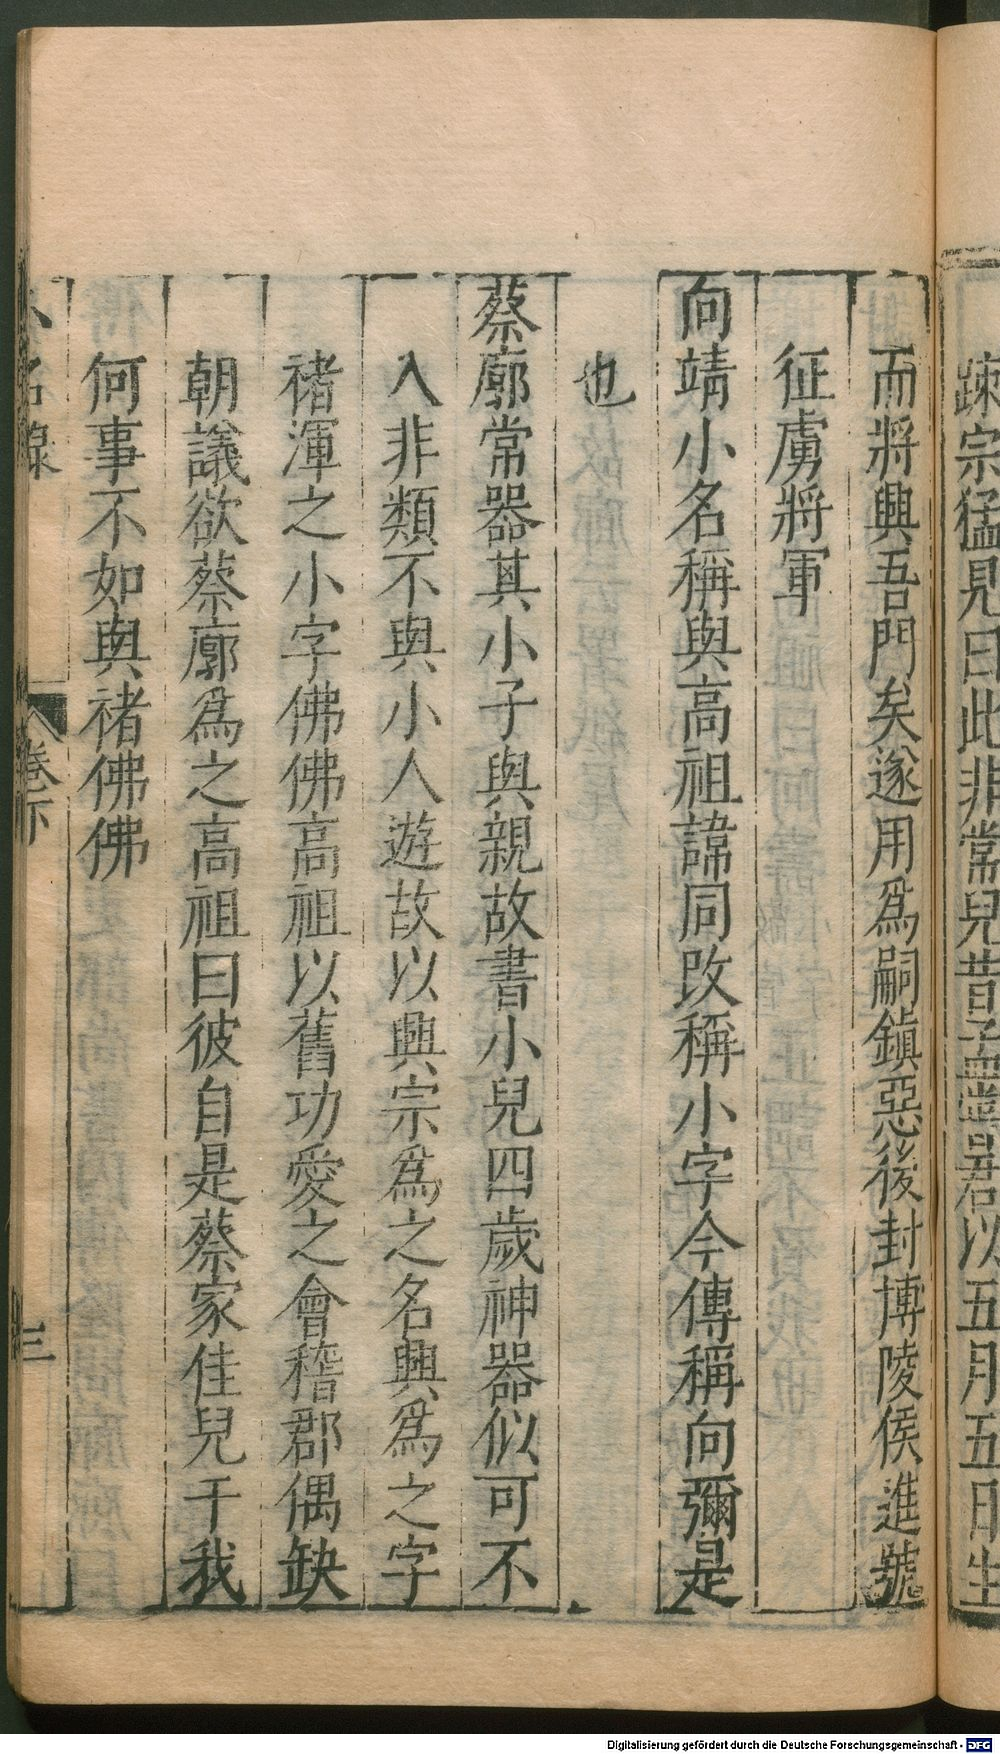 踈宗猛見曰此非常兒昔孟嘗君以五月五日生
而將興吾門矣遂用爲嗣鎮惡後封博陵侯進號
征虜將軍
向靖小名稱與高祖諱同改稱小字今傳稱向彌是
也
蔡廓常器其小子與親故書小兒四歲神器似可不
入非類不與小人遊故以興宗爲之名興爲之字
褚渾之小字佛佛高祖以舊功愛之會稽郡偶缺
朝議欲蔡廓爲之高祖曰彼自是蔡家佳兒干我
何事不如與褚佛佛
小名錄 卷下 三
Digitalisierung gefördert durch die Deutsche Forschungsgemeinschaft - DFG